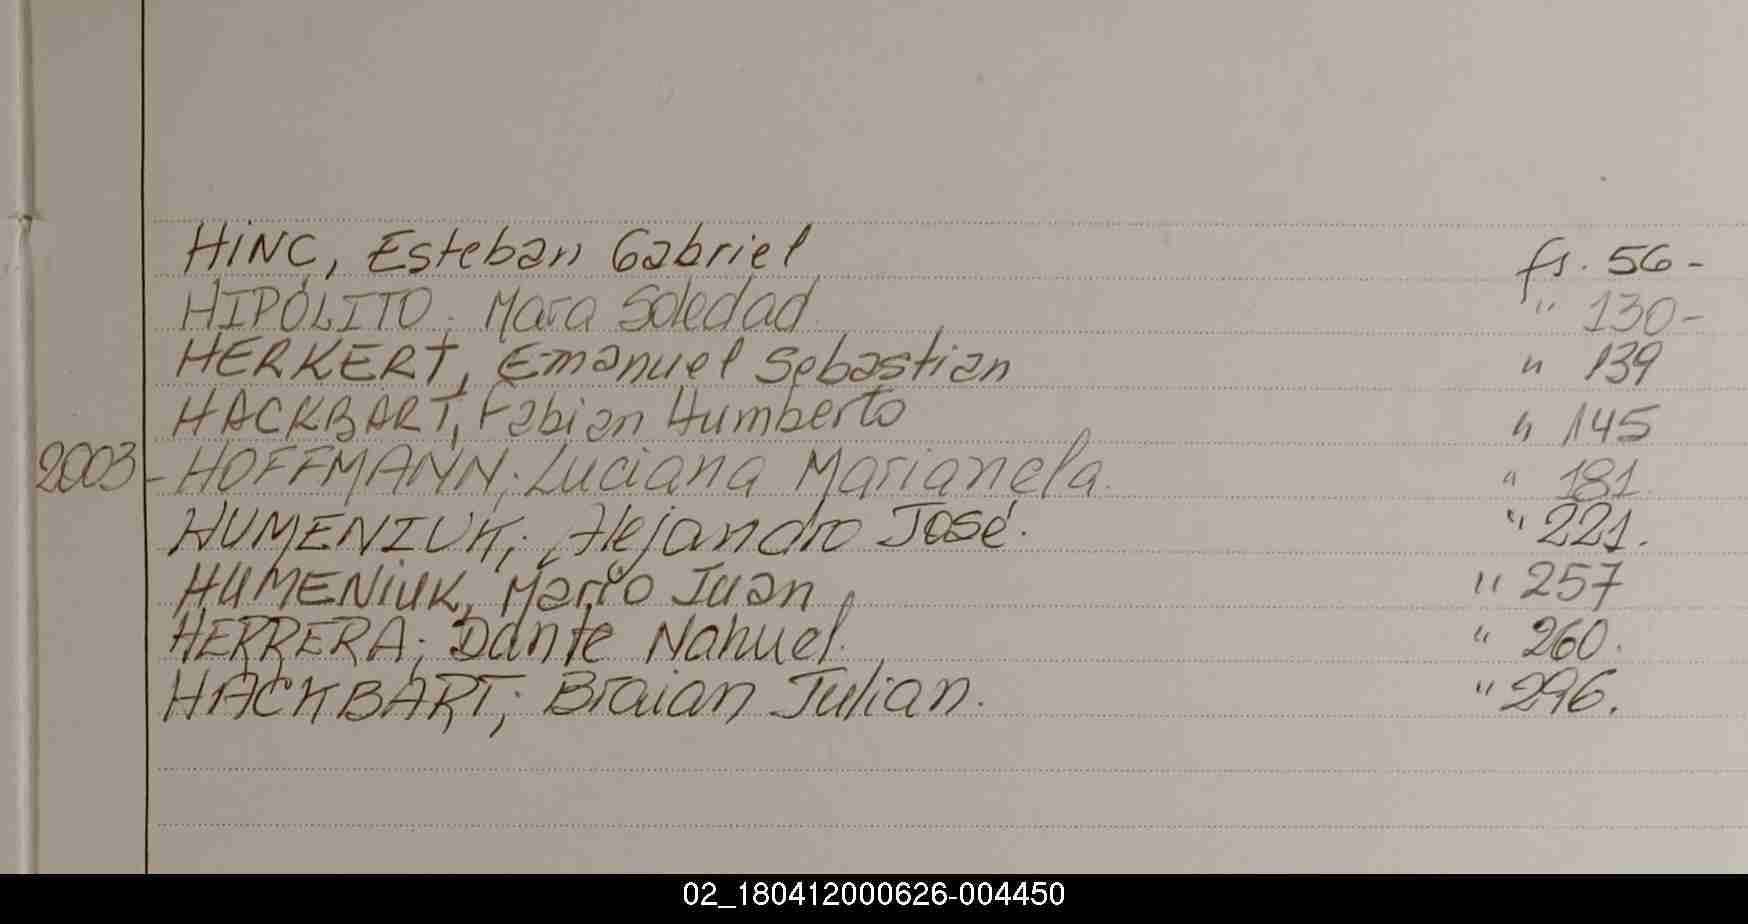 HINC, Esteban Gabriel fs. 56-
HIPÓLITO; Mara Soledad " 130-
HERKERT, Emanuel Sebastian " 139
HACKBART, Fabian Humberto " 145
2003 - HOFFMANN; Luciana Marianela. " 181.
HUMENIUK; Alejandro José. " 221.
HUMENIUK, Mario Juan " 257
HERRERA; Dante Nahuel. " 260.
HACKBART; Braian Julian. " 296.
02_180412000626-004450